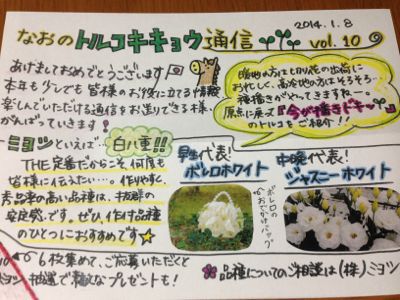 2014.1.8
なおのトルコキキョウ通信 vol.10
あけましておめでとうございます
本年も少しでも皆様のお役に立てる情報
楽しんでいただける通信をお送りできる様、
がんばっていきます!
暖地の方は切り花の出荷に
おわれて、高冷地の方はそろそろ…
種播きがやってきますねー。
原点に戻って『今が播きドキッ』
のトルコをご紹介!!
ミヨシといえば… 白八重!!
THE 定番だからこそ何度も
皆様に伝えたい…。作りやすく、
秀品率の高い品種は、抜群の
安定感です。ぜひ、作付品種
のひとつにおすすめです
早生代表!
ボレロホワイト
ボレロの
おでかけバッグ
中晩代表!
ジャスニーホワイト
6枚集めて、ご応募いただくと
抽選で素敵なプレゼントも!
品種についてのご相談は(株)ミヨシ